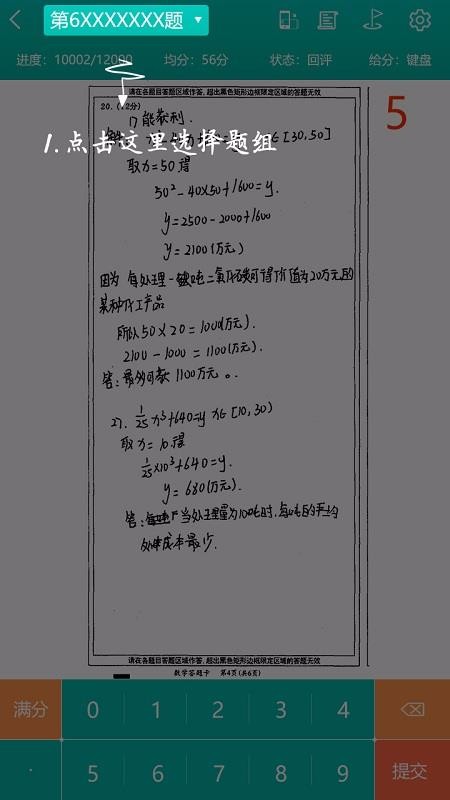 第6XXXXXXX题
进度：10002/12000 均分：56分 状态：回评 给分：键盘
请在各题目答题区域作答，超出黑色矩形边框限定区域的答题无效
20. (12分)
5
1) 能获利.
1.点击这里选择题组
[30,50]
取x=50得
50²-40×50+1600=y.
y=2500-2000+1600
y=2100(万元)
因为 每处理一吨二氧化碳可得价值为20万元的
某种化工产品
所以50×20=1000(万元).
2100-1000=1100(万元).
答:最多可获1100万元。
2). 1/25 x³+640=y x∈[10,30)
取x=10.得
1/25×10³+640=y.
y=680(万元).
答: 当处理量为10吨时,每吨的平均
处理成本最少.
请在各题目答题区域作答，超出黑色矩形边框限定区域的答题无效
数学答题卡 第4页(共6页)
满分 0 1 2 3 4
· 5 6 7 8 9 提交